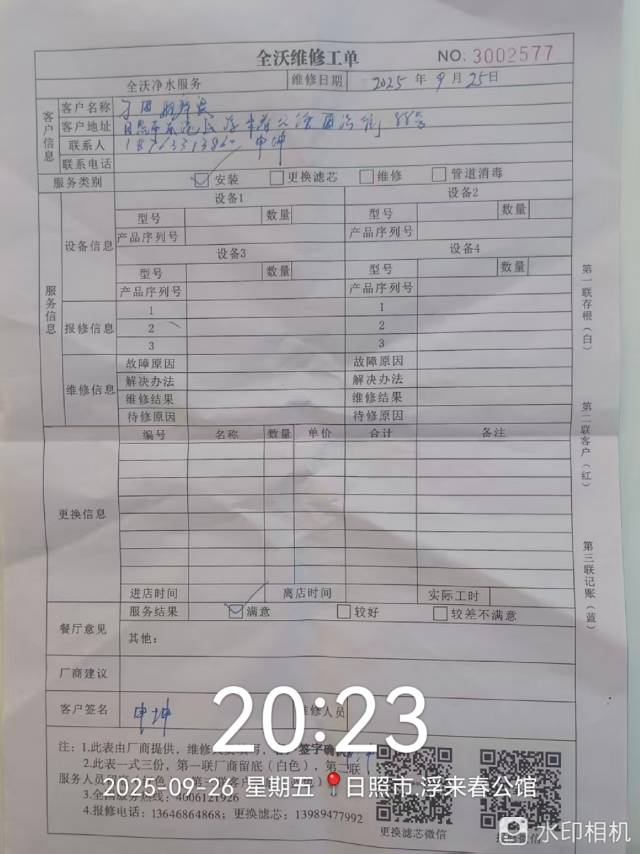 全沃维修工单
NO: 3002577
全沃净水服务 维修日期 2025 年 9 月 25 日
客户信息
客户名称
客户地址 88号
联系人 申坤
联系电话
服务类别 安装 更换滤芯 维修 管道消毒
服务信息
设备信息
设备1 设备2
型号 数量 型号 数量
产品序列号 产品序列号
设备3 设备4
型号 数量 型号 数量
产品序列号 产品序列号
报修信息
1 1
2 2
3 3
维修信息
故障原因 故障原因
解决办法 解决办法
维修结果 维修结果
待修原因 待修原因
更换信息
编号 名称 数量 单价 合计 备注
进店时间 离店时间 实际工时
餐厅意见
服务结果 满意 较好 较差不满意
其他:
厂商建议
客户签名 申坤 维修人员
第一联存根(白)
第二联客户(红)
第三联记账(蓝)
注: 1.此表由厂商提供, 签字确
2.此表一式三份, 第一联厂商留底(白色), 第二联
服务人员
3.全国服务热线: 4006121926
4.报修电话: 13646864868; 更换滤芯: 13989477992
更换滤芯微信
20:23
2025-09-26 星期五 日照市.浮来春公馆
水印相机